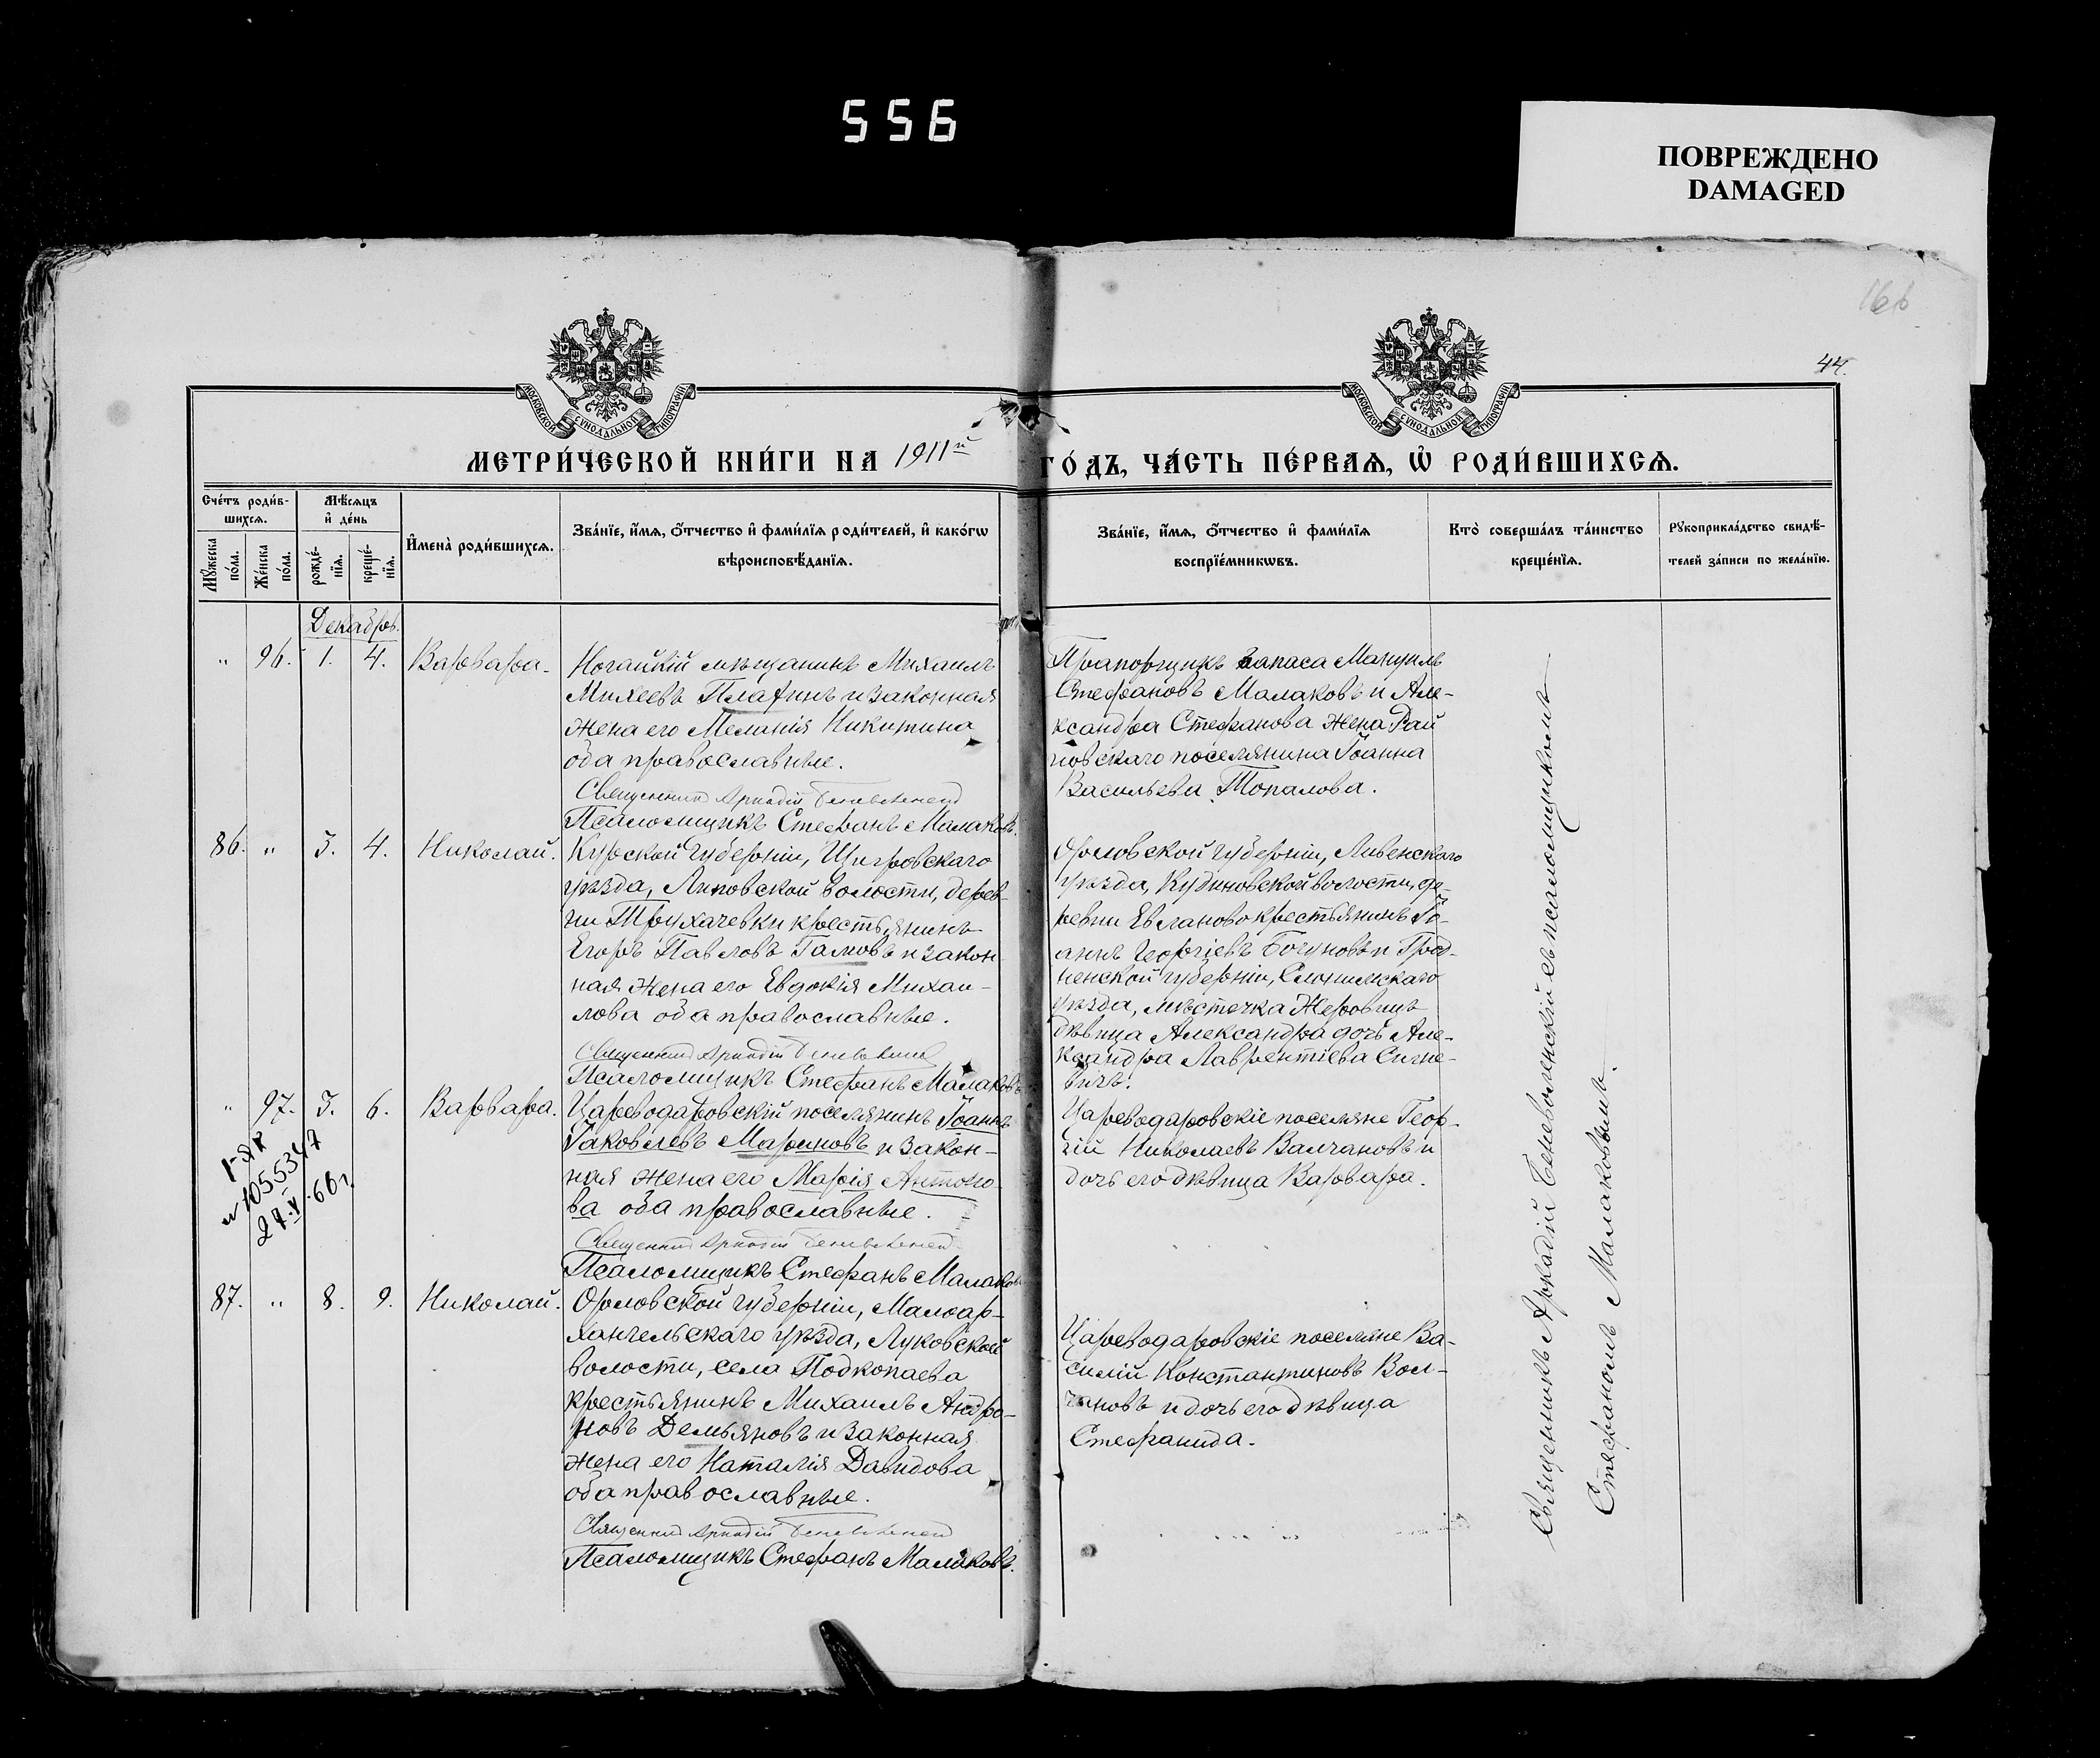 556
ПОВРЕЖДЕНО
DAMAGED
166
44.
МОСКОВСКОЙ СУНОДАЛЬНОЙ ТИПОГРАФИИ
МОСКОВСКОЙ СУНОДАЛЬНОЙ ТИПОГРАФИИ
МЕТРИ́ЧЕСКОЙ КНИ́ГИ НА 1911й
ГО́ДЪ, ЧА́СТЬ ПЕ́РВАѦ, Ѡ҆ РОДИ́ВШИХСѦ.
Сче́тъ роди́в-
шихсѧ.
Мꙋ́жеска по́ла.
Же́нска по́ла.
Мѣ́сѧцъ
и҆ де́нь
рожде́-
нїѧ.
креще́-
нїѧ.
И҆мена̀ роди́вшихсѧ.
Зва́нїе, и҆́мѧ, ѻ҆́тчество и҆ фами́лїѧ роди́телей, и҆ како́гѡ
вѣроисповѣ́данїѧ.
Зва́нїе, и҆́мѧ, ѻ҆́тчество и҆ фами́лїѧ
воспрїе́мникѡвъ.
Кто̀ соверша́лъ та́инство
креще́нїѧ.
Рꙋкоприкла́дство свидѣ́-
телей за́писи по жела́нїю.
Декабрь.
" 96. 1. 4. Варвара.
Ногайкій мѣщанинъ Михаилъ
Михеевъ Платинъ и законная
жена его Меланія Никитина
оба православные.
Священник Аркадій Беневоленский
Псаломщикъ Стефанъ Малаковъ.
Прапорщикъ запаса Мануилъ
Стефановъ Малаковъ и Але-
ксандра Стефанова жена Рай
новскаго поселянина Іоанна
Васильева Топалова.
86. " 3. 4. Николай.
Курской губерніи, Щигровскаго
уѣзда, Липовской волости, дерев-
ни Трухачевки крестьянинъ
Егоръ Павловъ Галковъ и закон
ная жена его Евдокія Михаи-
лова оба православные.
Священник Аркадій Беневоленский
Псаломщикъ Стефанъ Малаковъ
Орловской губерніи, Ливенскаго
уѣзда, Кудиновской волости, де-
ревни Евланово крестьянинъ Іо-
аннъ Георгіевъ Богуновъ и Грод-
ненской губерніи, Слонимскаго
уѣзда, мѣстечка Жеровицъ
дѣвица Александра дочь Але-
ксандра Лаврентіева Сигне-
вичъ.
" 97. 3. 6. Варвара.
Цареводаровскій поселянинъ Іоаннъ
Іаковлевъ Мариновъ и закон-
ная жена его Марія Антоно-
ва оба православные.
Священник Аркадій Беневоленский
Псаломщикъ Стефанъ Малаковъ
Цареводаровскіе поселяне Геор-
гій Николаевъ Валчановъ и
дочь его дѣвица Варвара.
I-ЯР
№ 1055347
24.V.66 г.
87. " 8. 9. Николай.
Орловской губерніи, Малоар-
хангельскаго уѣзда, Луковской
волости, села Подкопаева
крестьянинъ Михаилъ Андро-
новъ Демьяновъ и законная
жена его Наталія Давидова
оба православные.
Священник Аркадій Беневоленский
Псаломщикъ Стефанъ Малаковъ.
Цареводаровскіе поселяне Ва-
силій Константиновъ Вол-
чановъ и дочь его дѣвица
Стефанида.
Священникъ Аркадій Беневоленскій съ псаломщикомъ
Стефаномъ Малаковымъ.